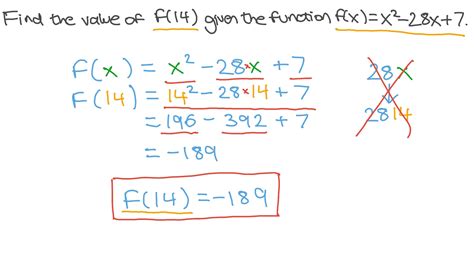 Find the value of f(14) given the function f(x)=x²-28x+7.
F(x) = x² -28•x +7
F(14) = 14² -28•14 +7
= 196 - 392 + 7
= -189
F(14)=-189
28x
2814